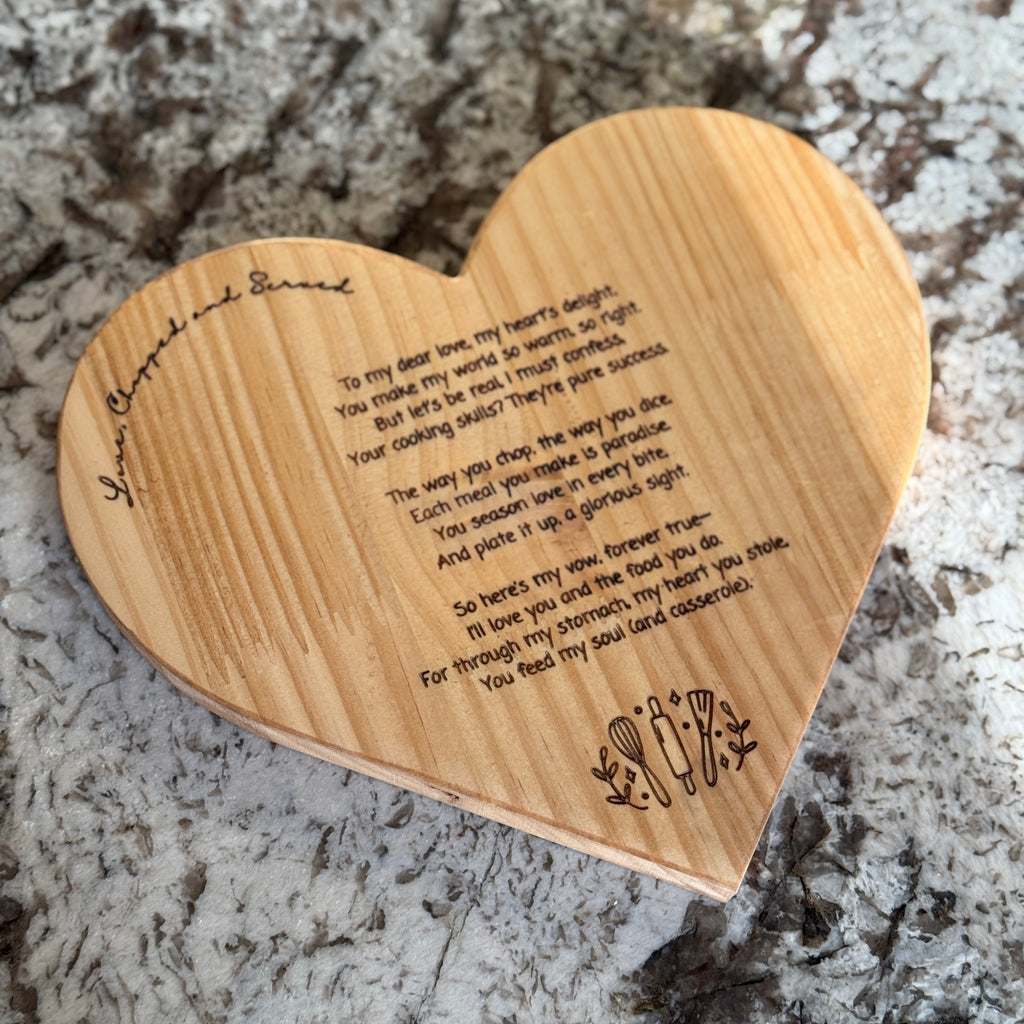 Love, Chopped and Served
To my dear love, my heart's delight,
You make my world so warm, so right.
But let's be real, I must confess,
Your cooking skills? They're pure success.
The way you chop, the way you dice,
Each meal you make is paradise.
You season love in every bite,
And plate it up, a glorious sight.
So here's my vow, forever true—
I'll love you and the food you do.
For through my stomach, my heart you stole,
You feed my soul (and casserole).